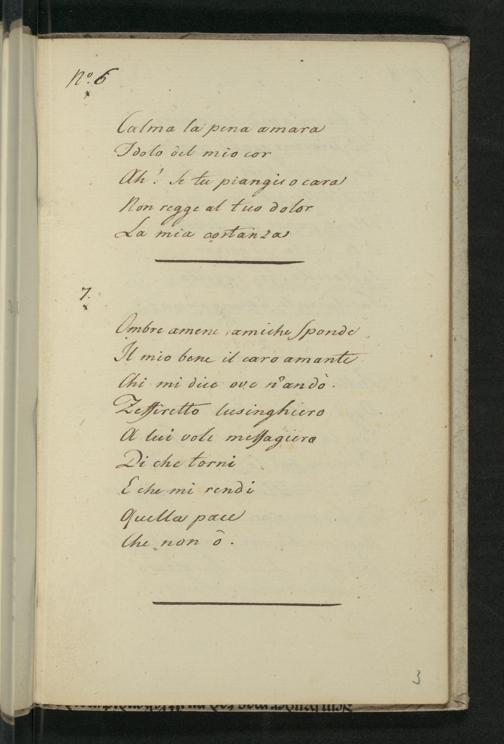 N.º 6
Calma la pena amara
Idolo del mio cor
Ah! se tu piangi o cara
Non regge al tuo dolor
La mia costanza
7.
Ombre amene, amiche sponde
Il mio bene il caro amante
Chi mi dice ove n'andò.
Zeffiretto lusinghiero
A lui vole messagiero
Di che torni
E che mi rendi
Quella pace
Che non ò.
3